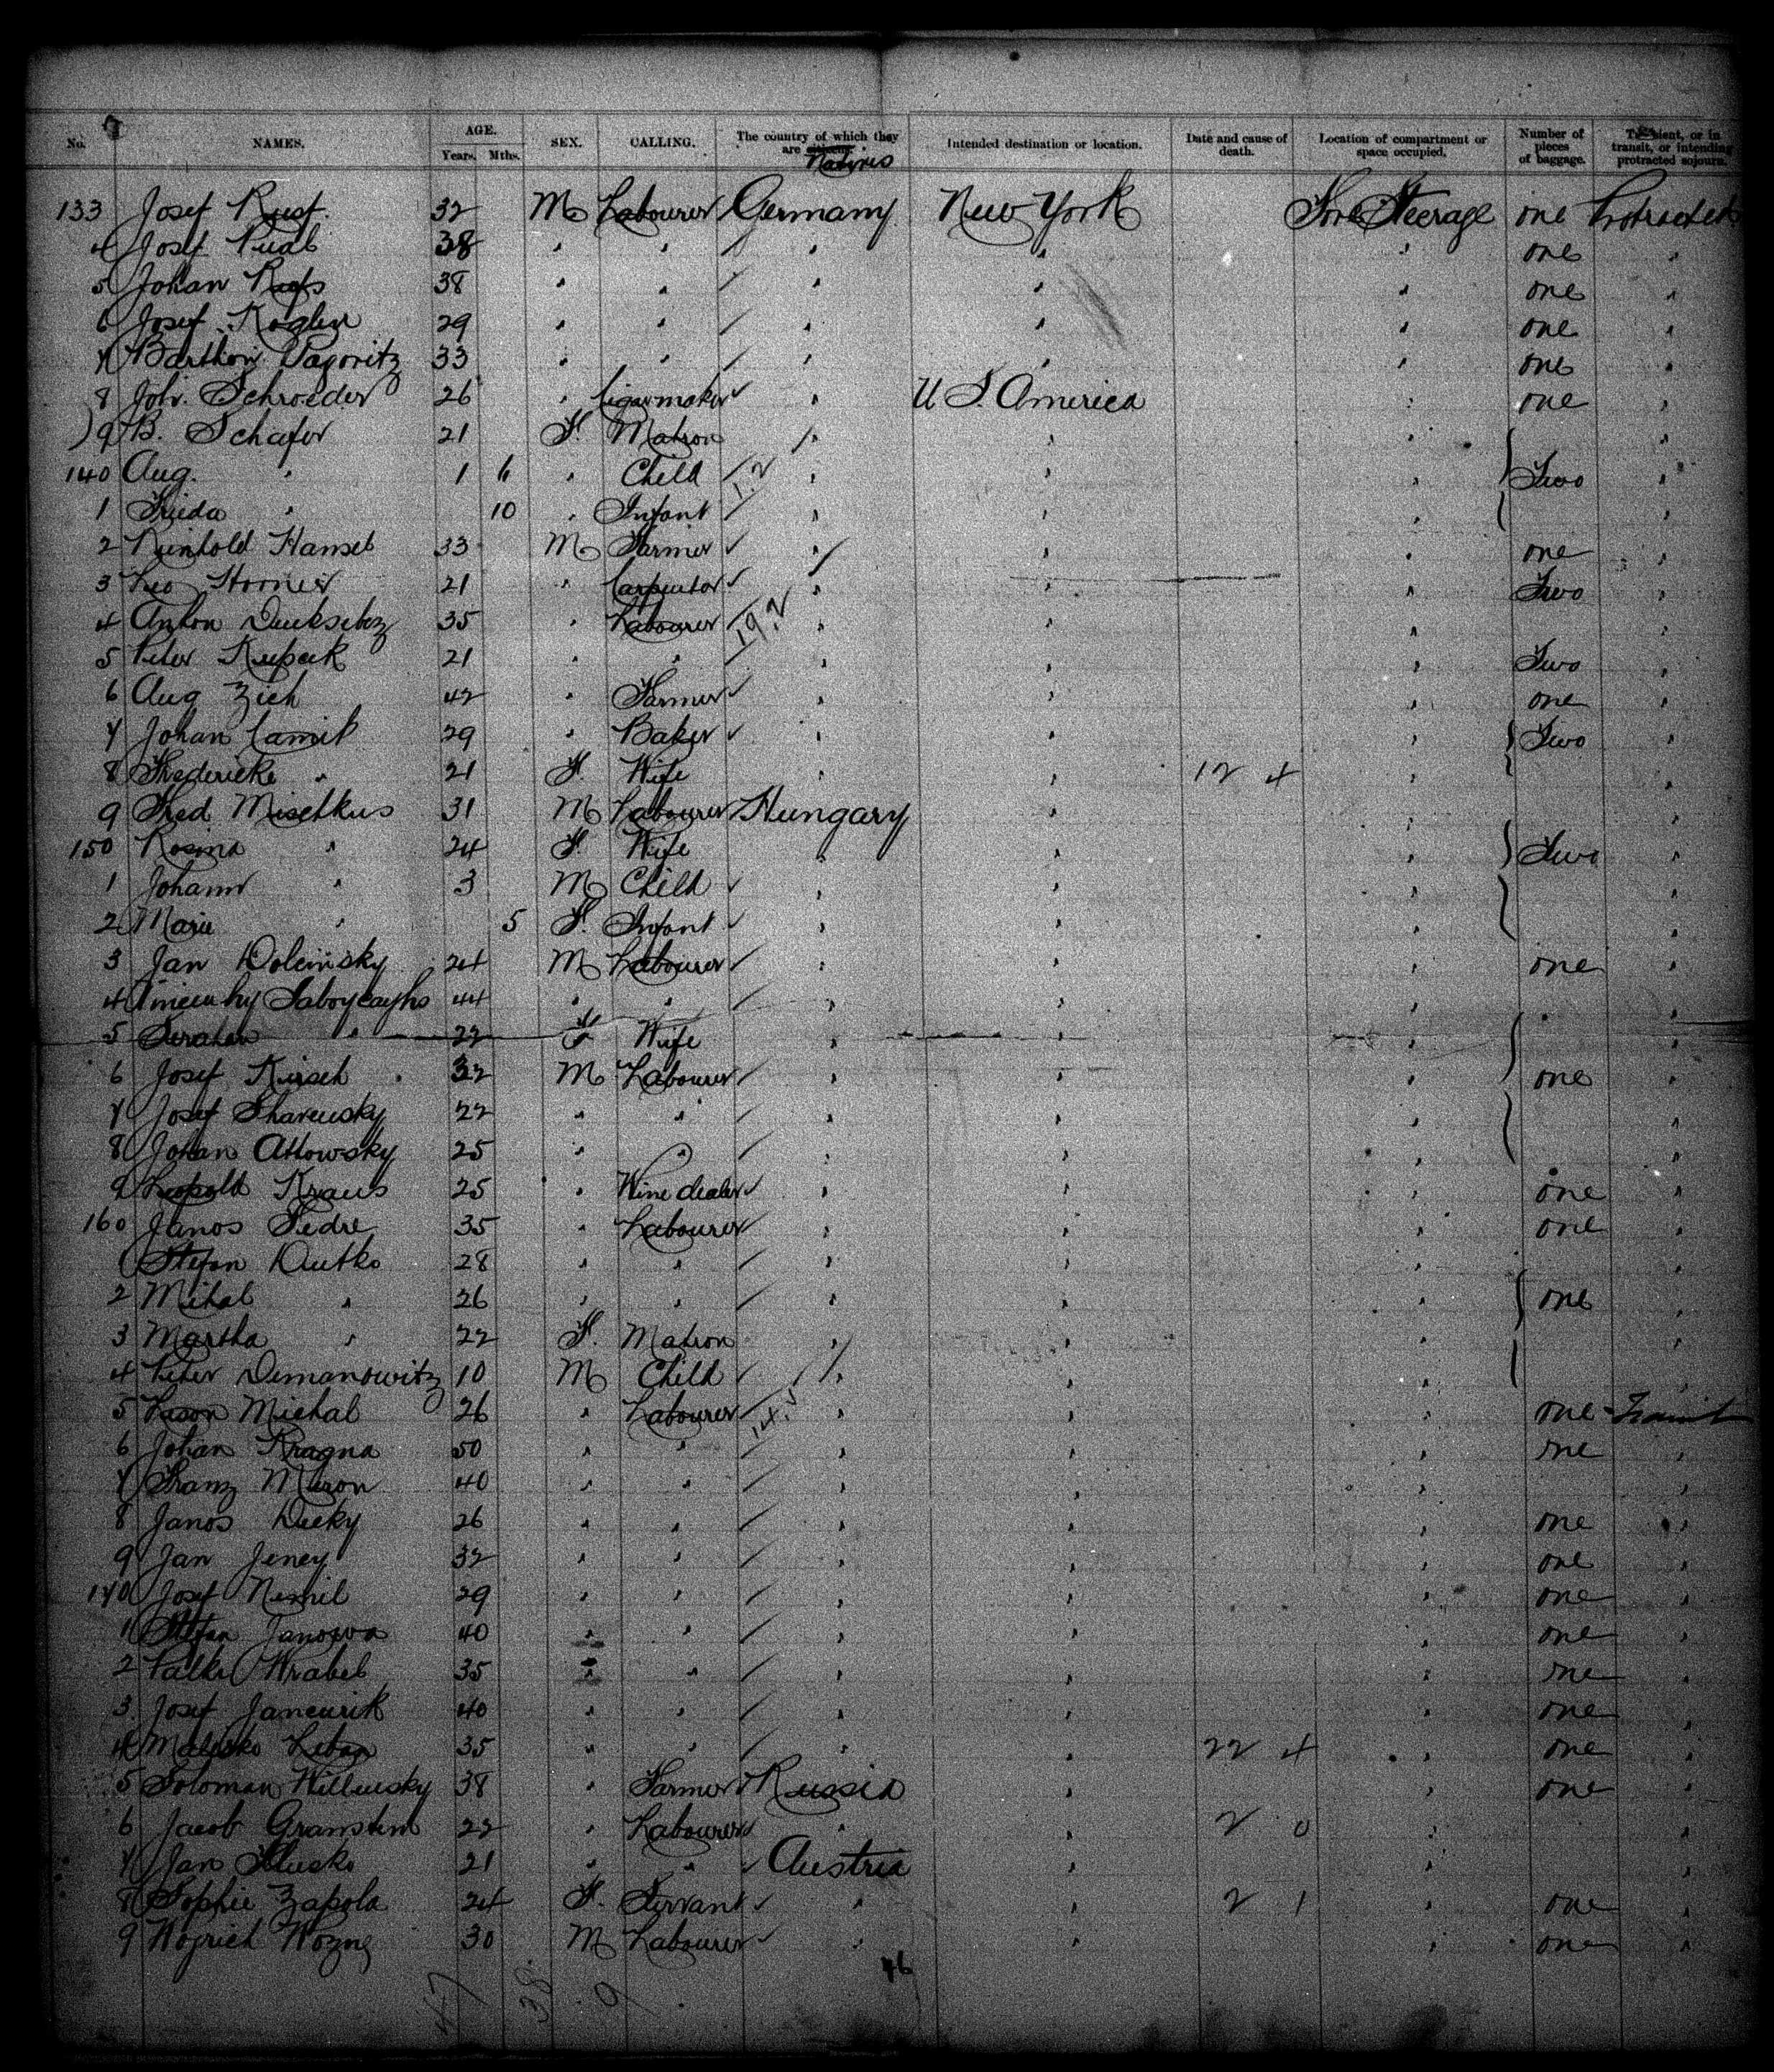 No. NAMES. AGE. Years. Mths. SEX. CALLING. The country of which they are citizens. Natives Intended destination or location. Date and cause of death. Location of compartment or space occupied. Number of pieces of baggage. Transient, or in transit, or intending protracted sojourn.
133 Josef Rust. 32 M Labourer Germany New York Fore Steerage one Protracted
4 Josef 38 " " " " " one "
5 Johan 38 " " " " " one "
6 Josef Koglin 29 " " " " " one "
7 33 " " " " " one "
8 Joh. Schroeder 26 " Cigarmaker " U S. America " one "
9 B. Schafer 21 F. Matron " " " "
140 Aug. " 1 6 " Child " " " Two "
1 Frieda " 10 " Infant " " " "
2 Reinhold Hansel 33 M Farmer " " " one "
3 Leo Horner 21 " Carpenter " " " Two "
4 Anton 35 " Labourer " " " "
5 Peter Kupcik 21 " " " " " Two "
6 Aug Zich 42 " Farmer " " " one "
7 Johan Camil 29 " Baker " " " Two "
8 Fredericke " 21 F. Wife " " 12 4 " "
9 Fred Misetkus 31 M Labourer Hungary " " "
150 Rosina " 24 F. Wife " " " Two "
1 Johann " 3 M Child " " " "
2 Marie " 5 F. Infant " " " "
3 Jan Dolcinsky 24 M Labourer " " " one "
4 44 " " " " " "
5 " 22 F Wife " " " "
6 Josef Kirsch 32 M Labourer " " " one "
7 Josef 22 " " " " " "
8 Johan Attowsky 25 " " " " " "
9 Leopold Kraus 25 " Wine dealer " " " one "
160 Janos Fedre 35 " Labourer " " " one "
1 Stefan Dutko 28 " " " " " "
2 Mihal " 26 " " " " " one "
3 Martha " 22 F. Matron " " " "
4 Peter Demanowitz 10 M Child " " " "
5 Michal 26 " Labourer " " " one Transit
6 Johan Kragna 50 " " " " " one "
7 Franz Muron 40 " " " " " "
8 Janos Ducky 26 " " " " " one "
9 Jan Jeney 32 " " " " " one "
170 Josef 29 " " " " " one "
1 Stefan Janowa 40 " " " " " one "
2 Wrabel 35 " " " " " one "
3 Josef Jancurik 40 " " " " " one "
4 35 " " " " 22 4 " one "
5 Soloman 38 " Farmer Russia " " one "
6 Jacob 22 " Labourer " " 2 0 " "
7 Jan 21 " " Austria " " "
8 Sophie Zapola 24 F. Servant " " 2 1 " one "
9 30 M Labourer " " " one "
46
47 38. 9